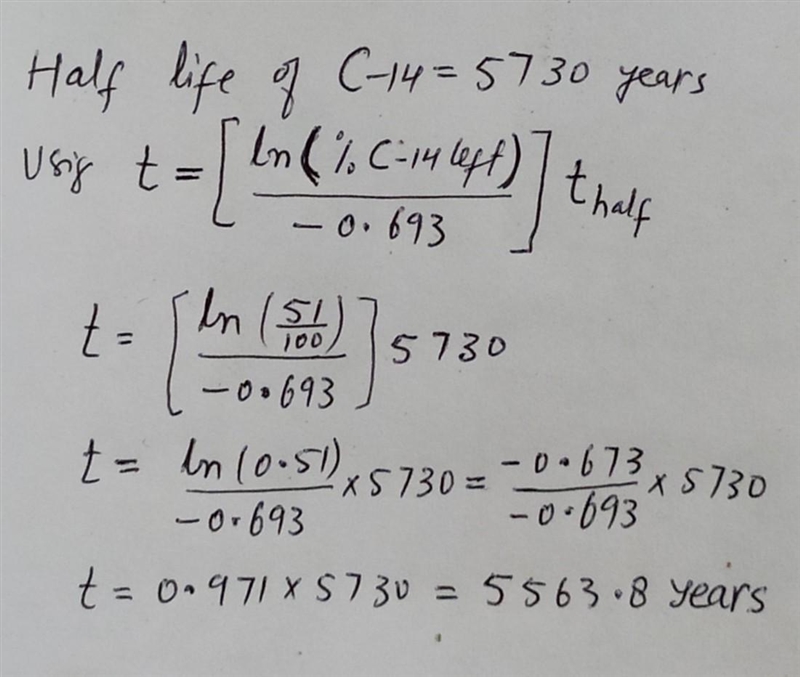 Half life of C-14 = 5730 years
Usig t = [ln(% C-14 left) / -0.693] t half
t = [ln(51/100) / -0.693] 5730
t = ln(0.51) / -0.693 x 5730 = -0.673 / -0.693 x 5730
t = 0.971 x 5730 = 5563.8 years